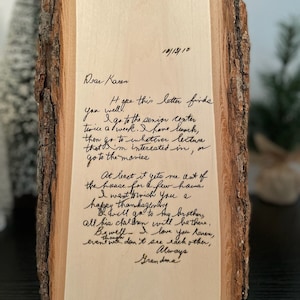 10/13/10
Dear Karen
Hope this letter finds
you well.
I go to the senior center
twice a week. I have lunch,
then go to whatever lecture
that I'm interested in, or
go to the movies.
At least it gets me out of
the house for a few hours.
I want to wish you a
happy thanksgiving
I will go to my brother,
all his children will be there.
Be well - I love you Karen,
even though don't see each other,
Always
Grandma